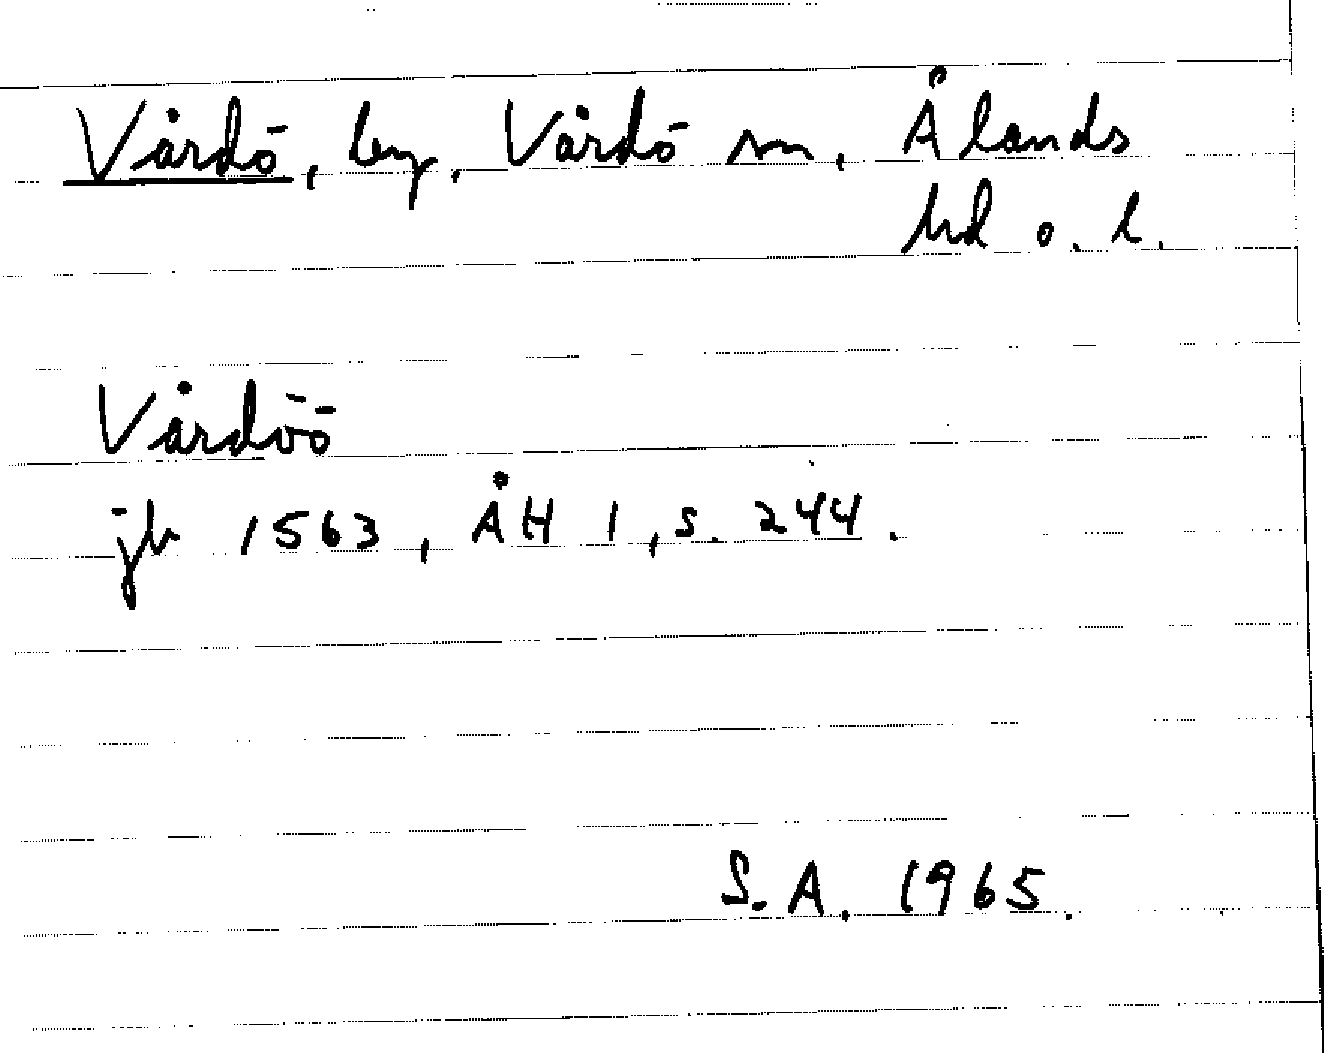 Vårdö, by, Vårdö sn, Ålands
hd o. l.
Vårdöö
jb 1563, ÅH 1, s. 244.
S.A. 1965.